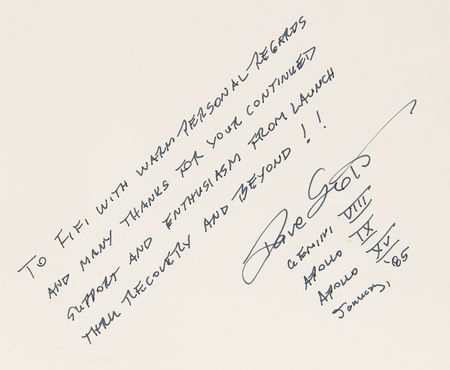 TO FIFI WITH WARM PERSONAL REGARDS
AND MANY THANKS FOR YOUR CONTINUED
SUPPORT AND ENTHUSIASM FROM LAUNCH
THRU RECOVERY AND BEYOND!!
Dave Scott
GEMINI VIII
APOLLO IX
APOLLO XV
January, '85